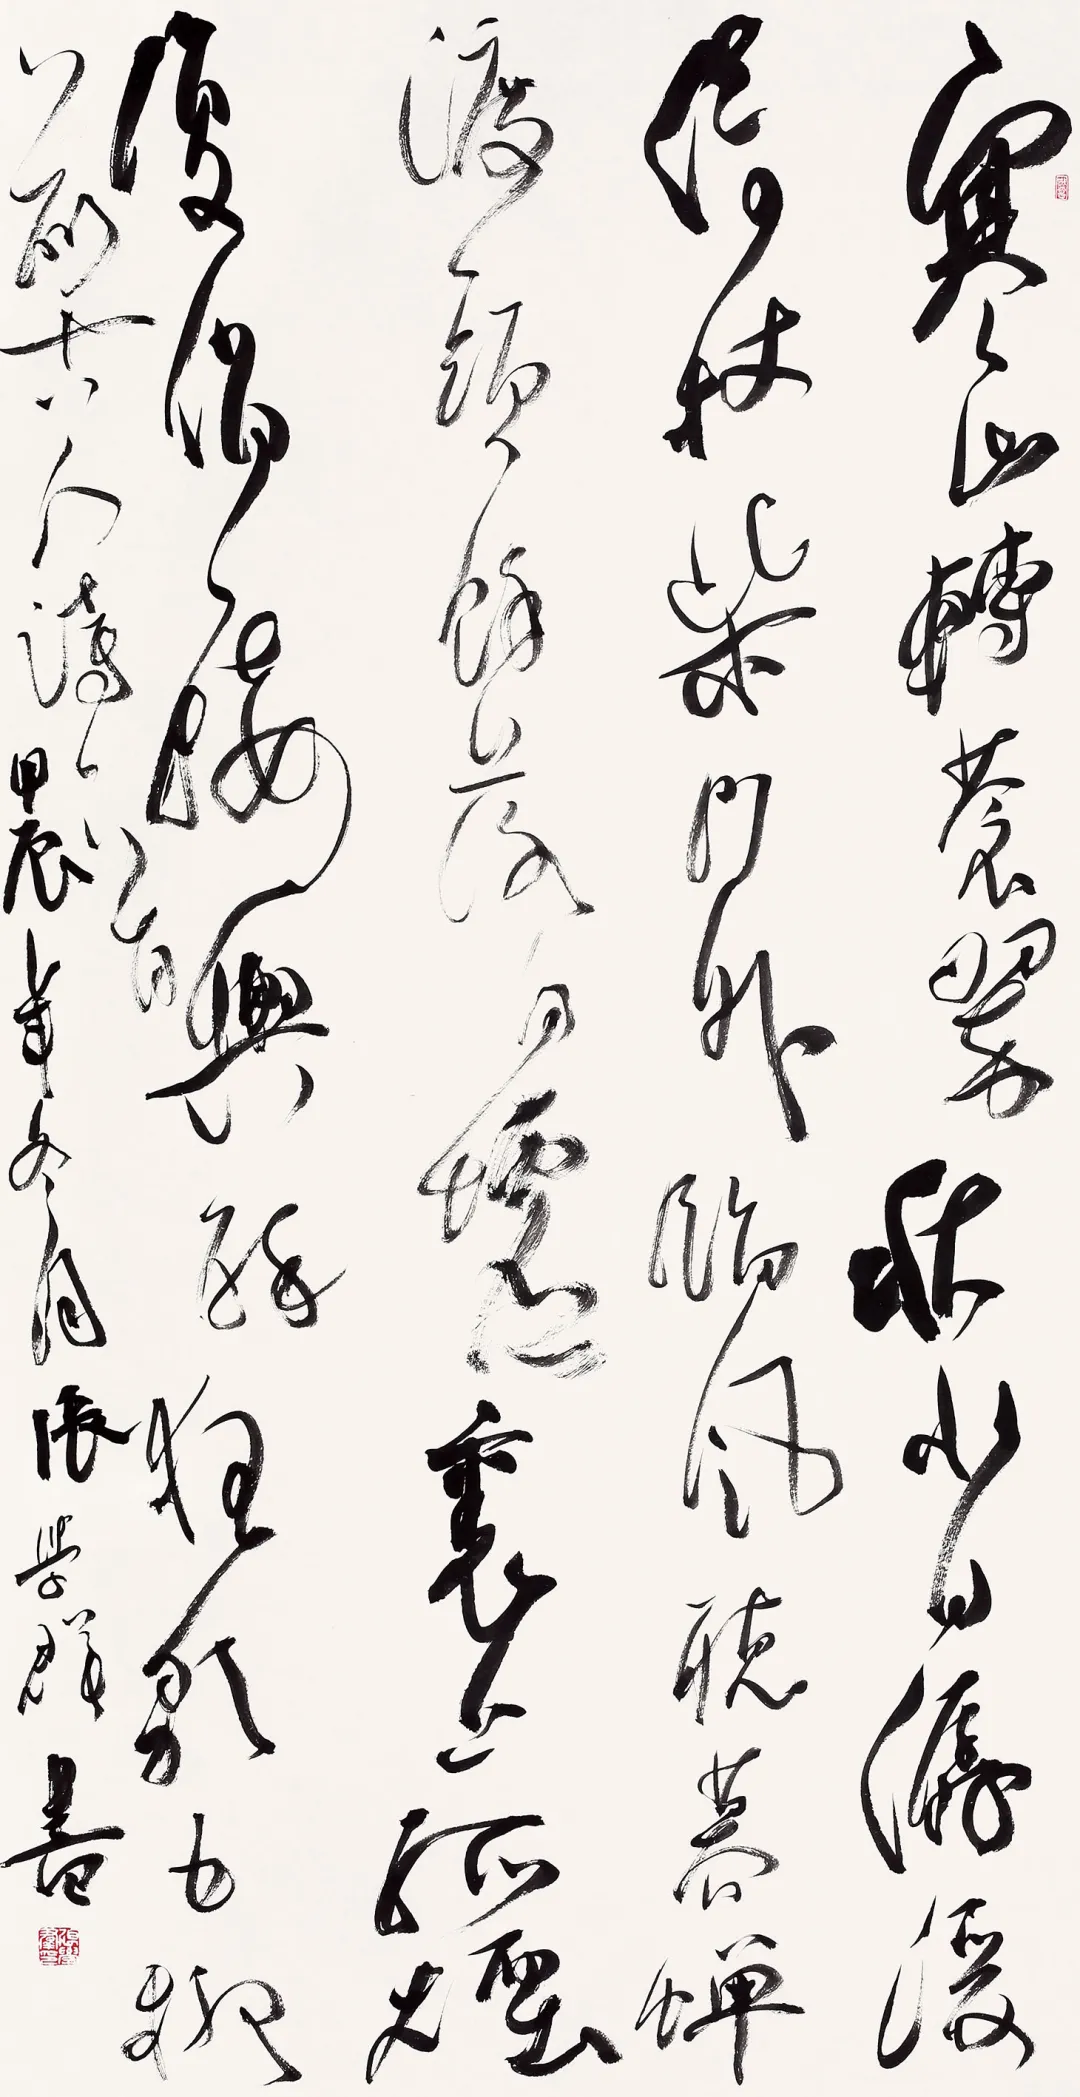 寒山轉蒼翠秋水日潺湲
倚杖柴門外臨風聽暮蟬
渡頭餘落日墟裏上孤煙
復值接輿醉狂歌五柳
前古人詩一首
甲辰年冬月張學群書